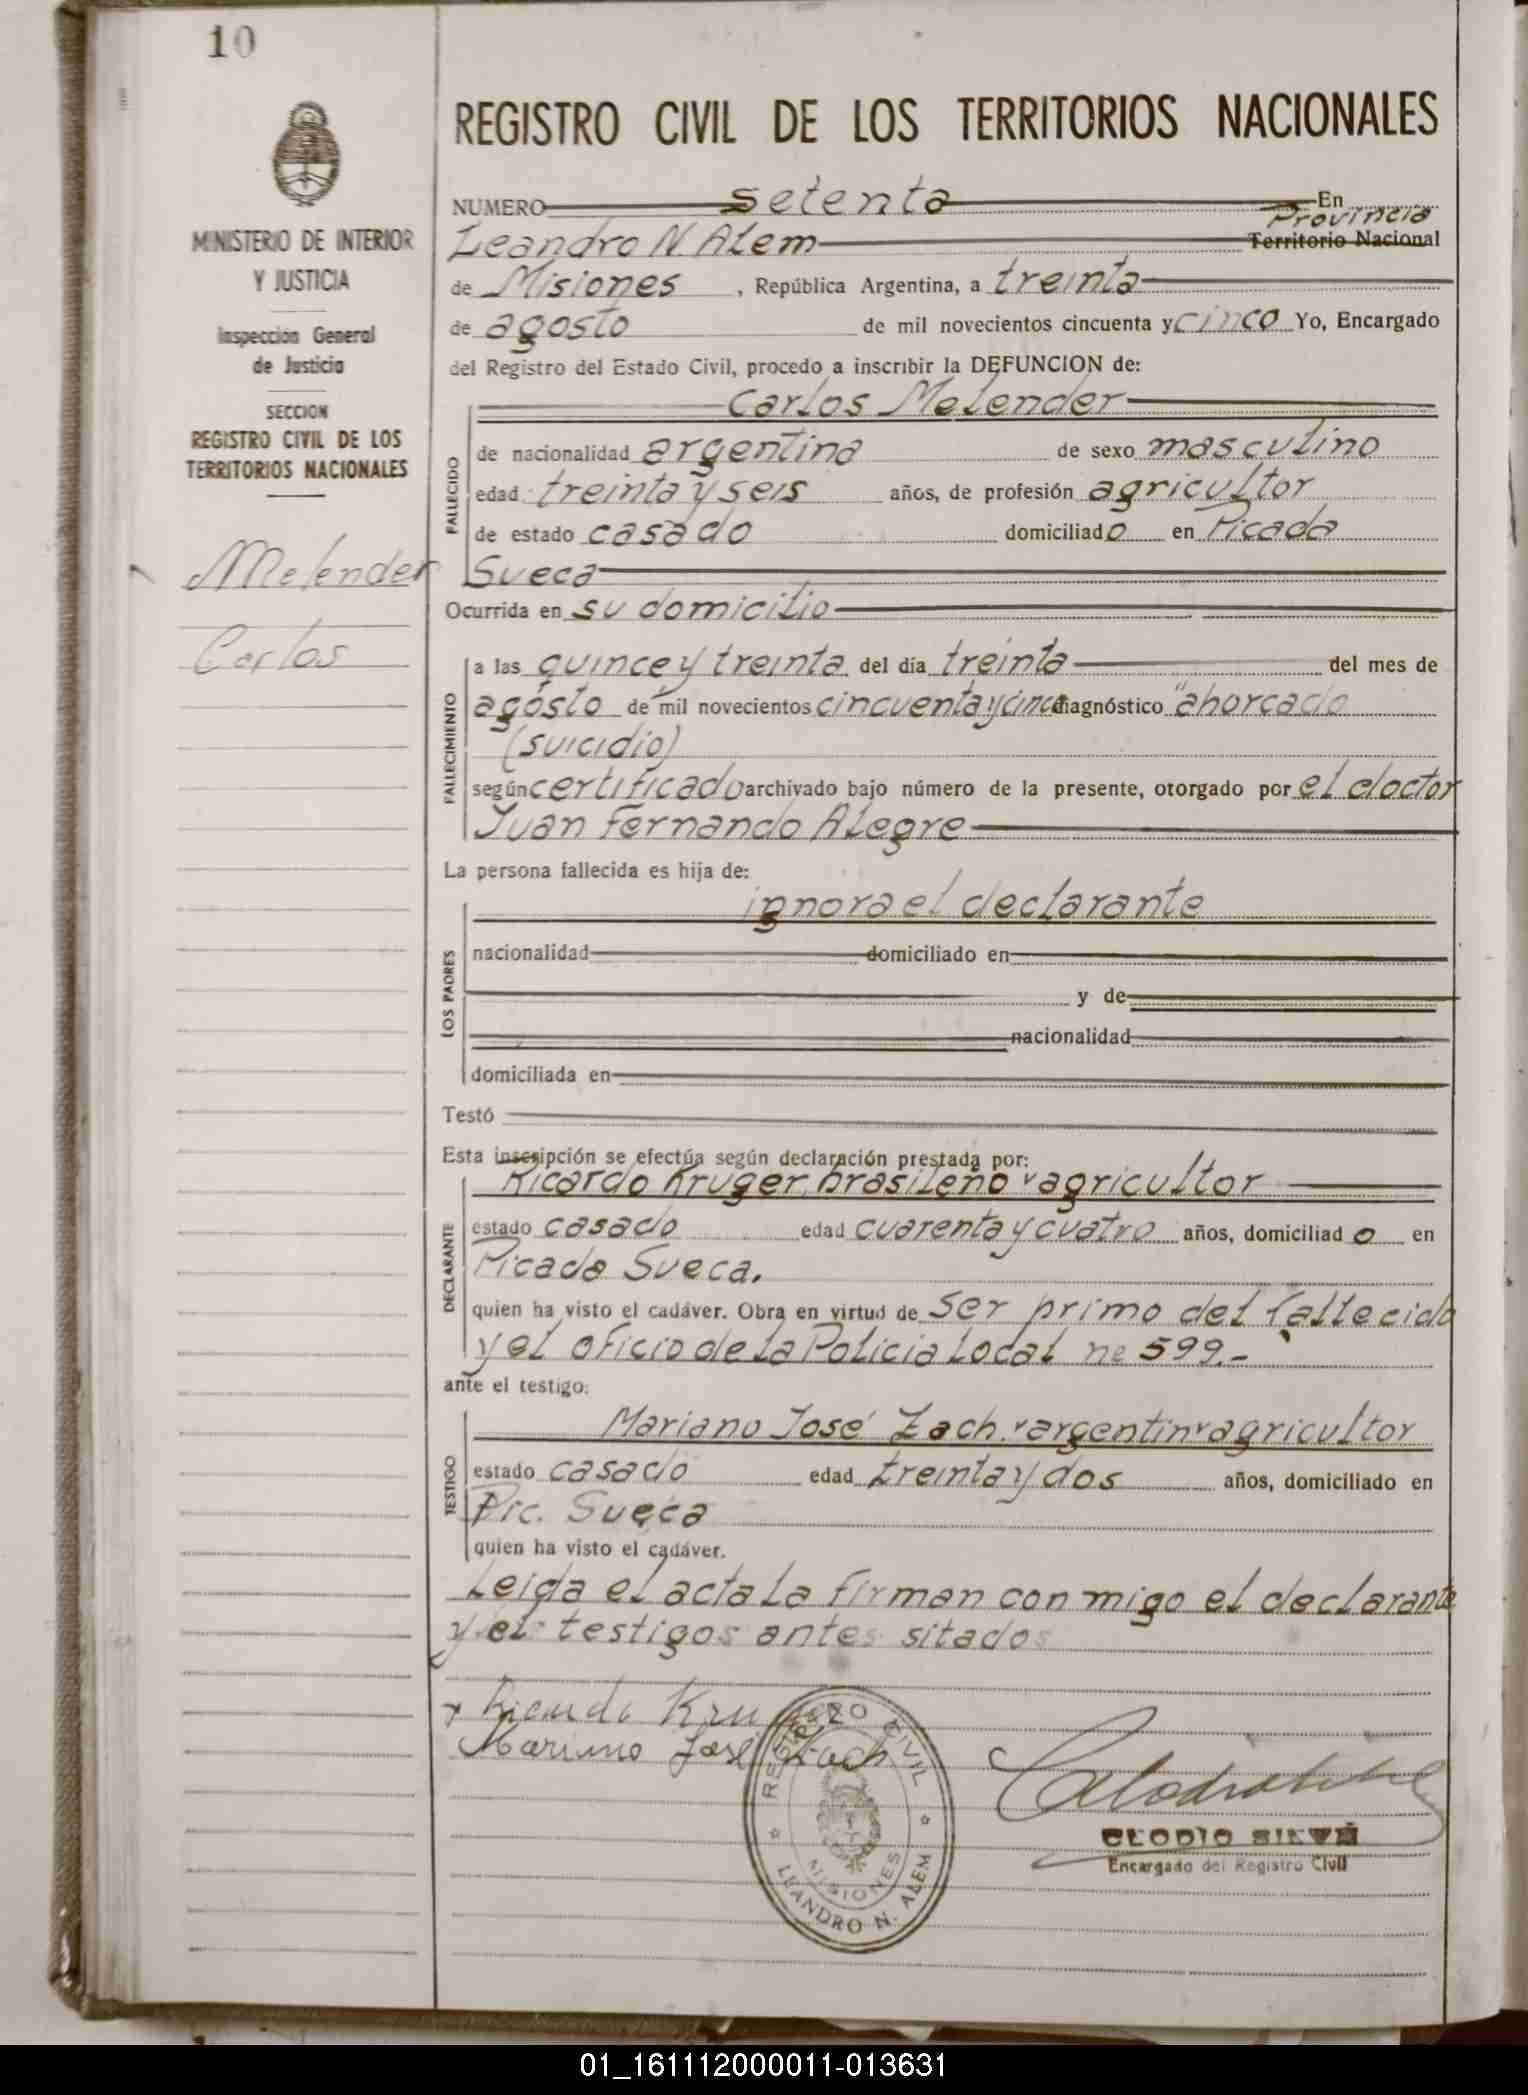 10
MINISTERIO DE INTERIOR
Y JUSTICIA
Inspección General
de Justicia
SECCION
REGISTRO CIVIL DE LOS
TERRITORIOS NACIONALES
Melender
Carlos
REGISTRO CIVIL DE LOS TERRITORIOS NACIONALES
NUMERO setenta En
Provincia
Leandro N. Alem Territorio Nacional
de Misiones , República Argentina, a treinta
de agosto de mil novecientos cincuenta y cinco Yo, Encargado
del Registro del Estado Civil, procedo a inscribir la DEFUNCION de:
Carlos Melender
FALLECIDO
de nacionalidad argentina de sexo masculino
edad treinta y seis años, de profesión agricultor
de estado casado domiciliado en Picada
Sueca
Ocurrida en su domicilio
FALLECIMIENTO
a las quince y treinta del día treinta del mes de
agosto de mil novecientos cincuenta y cinco diagnóstico "ahorcado
(suicidio)
según certificado archivado bajo número de la presente, otorgado por el doctor
Juan Fernando Alegre
La persona fallecida es hija de:
LOS PADRES
ignora el declarante
nacionalidad domiciliado en
y de
nacionalidad
domiciliada en
Testó
Esta inscripción se efectúa según declaración prestada por:
DECLARANTE
Ricardo Kruger, brasileño agricultor
estado casado edad cuarenta y cuatro años, domiciliad o en
Picada Sueca.
quien ha visto el cadáver. Obra en virtud de ser primo del fallecido
y el oficio de la Policia Local nº 599.-
ante el testigo:
TESTIGO
Mariano José Zach argentin agricultor
estado casado edad treinta y dos años, domiciliado en
Pic. Sueca
quien ha visto el cadáver.
Leida el acta la firman con migo el declarante
y el testigos antes sitados
Ricardo Kruger
Mariano José Zach
REGISTRO CIVIL
MISIONES
LEANDRO N. ALEM
CLODIO SILVA
Encargado del Registro Civil
01_161112000011-013631